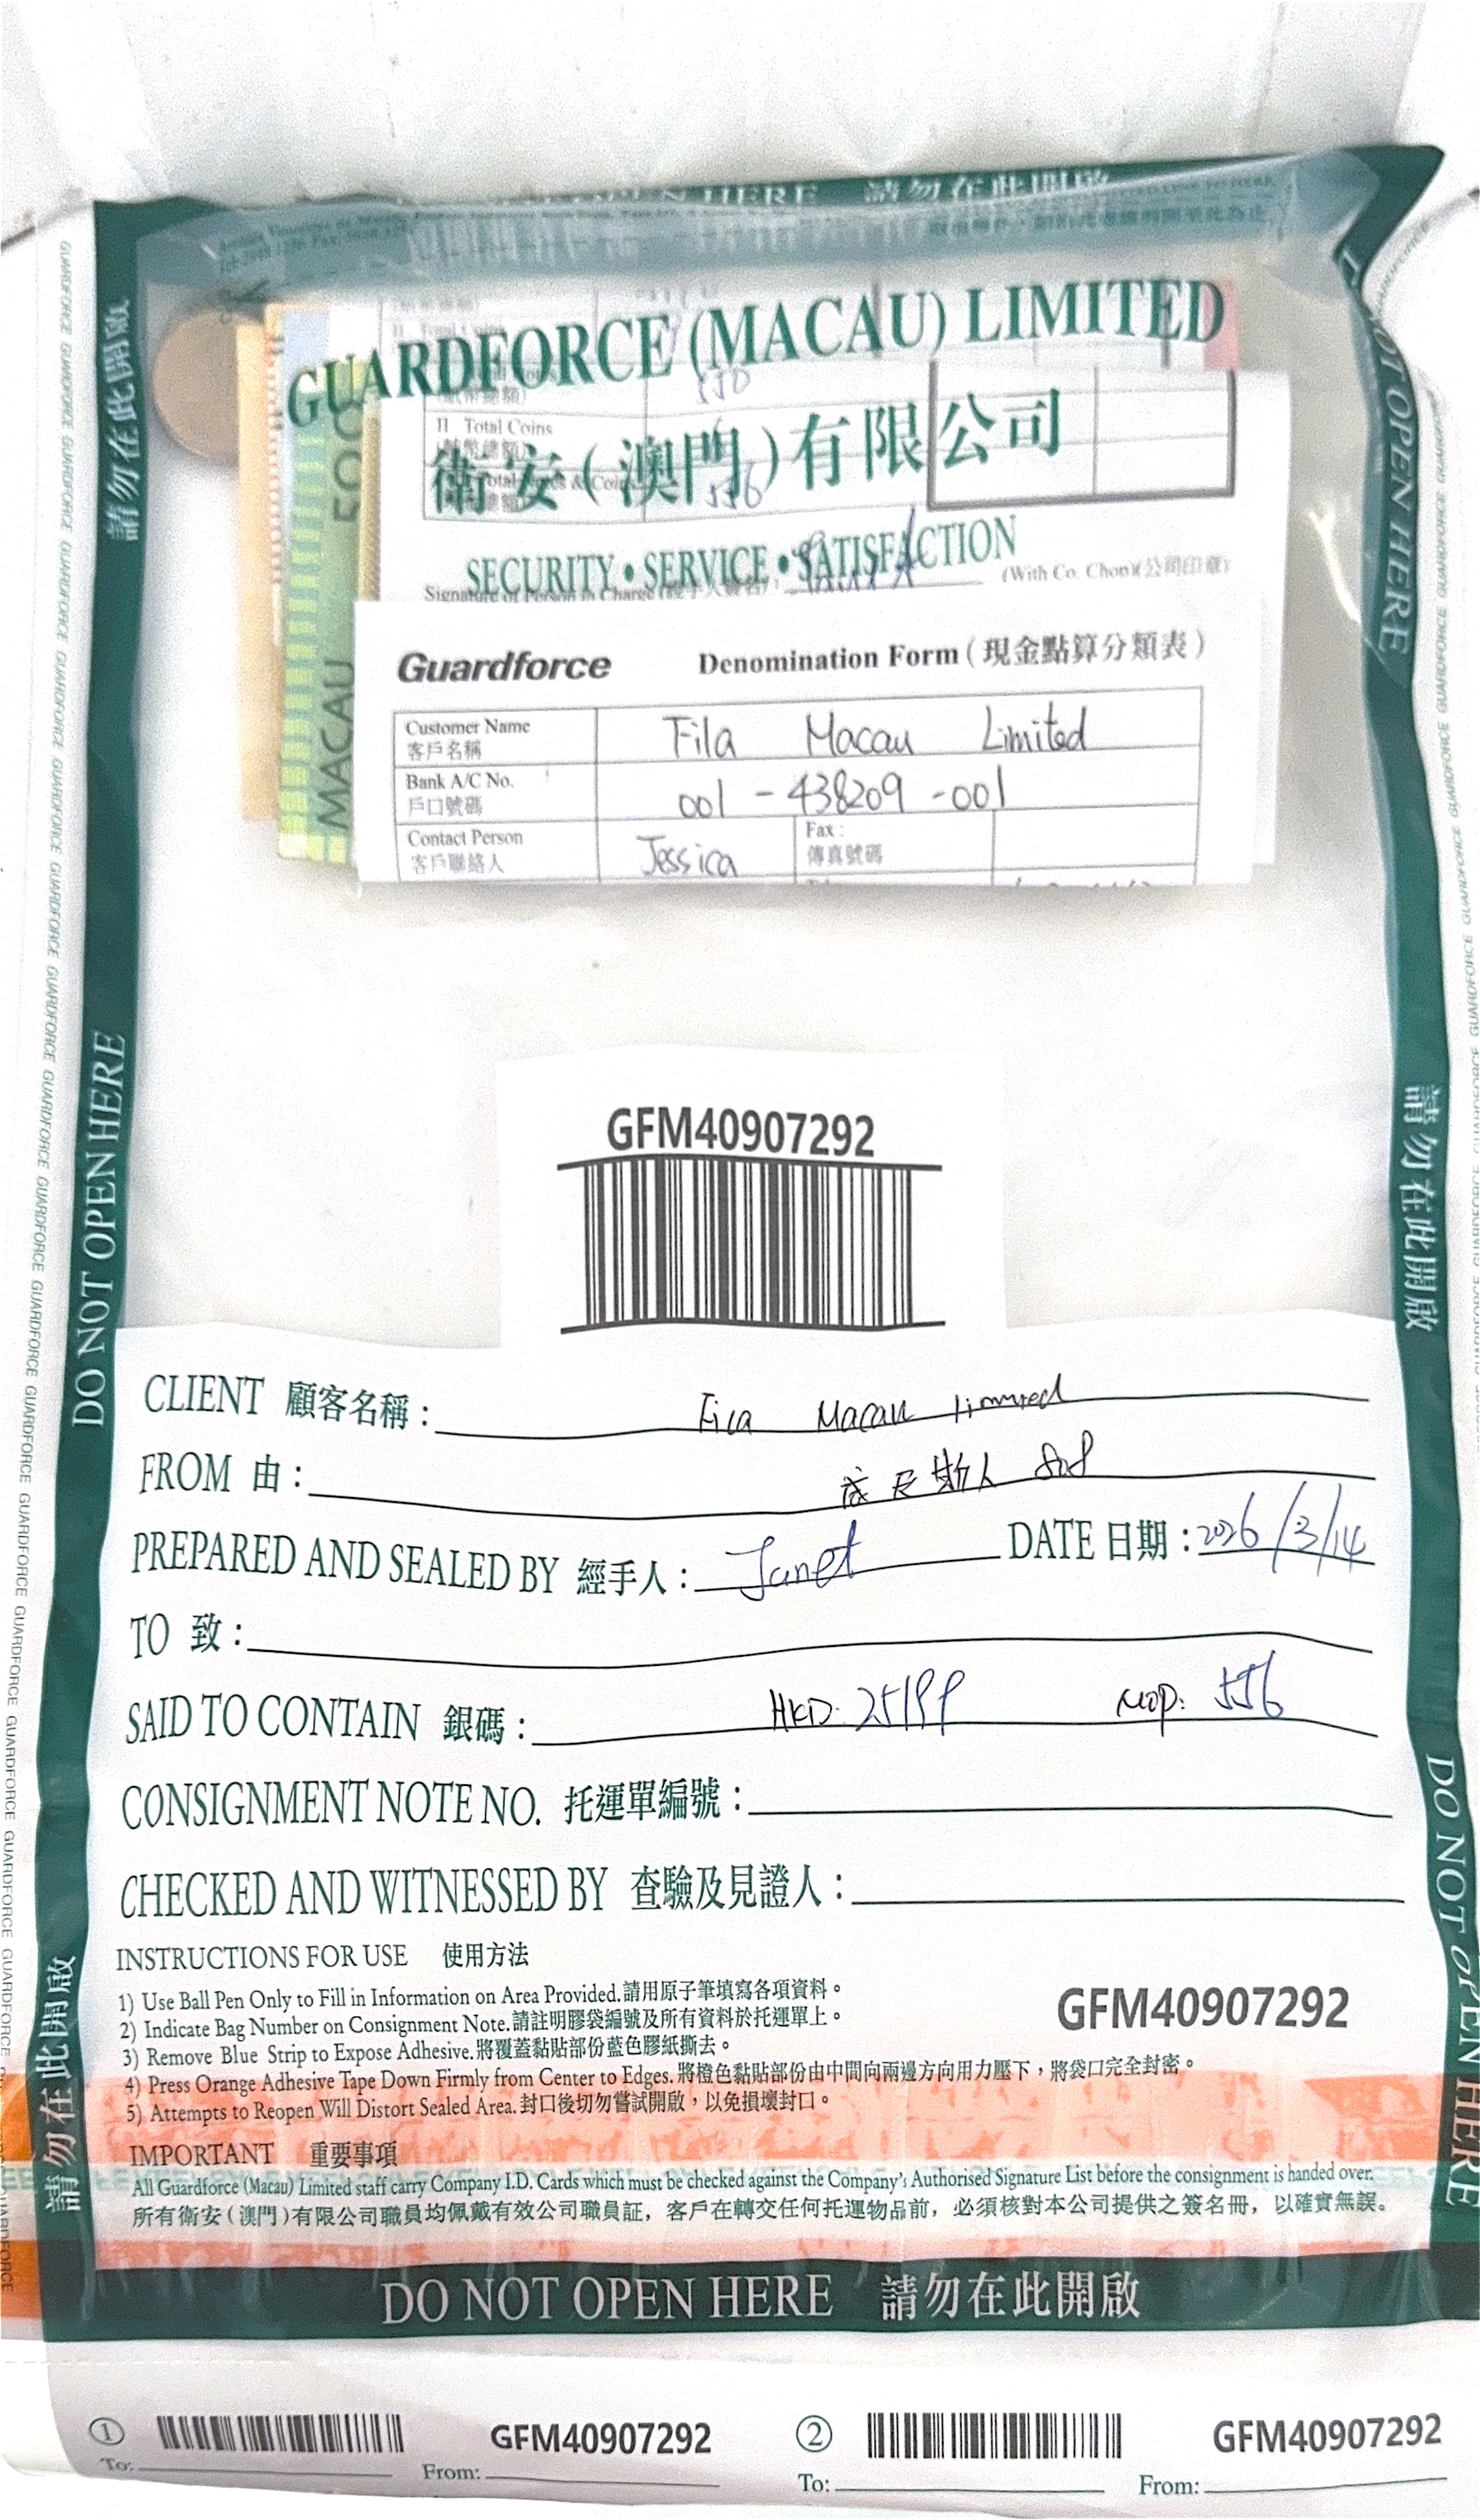 DO NOT OPEN HERE 請勿在此開啟
GUARDFORCE (MACAU) LIMITED
衛安(澳門)有限公司
SECURITY • SERVICE • SATISFACTION
550
11 Total Coins
556
Signature of Person in Charge
(With Co. Chop)(公司印章)
500
MACAU
Guardforce Denomination Form(現金點算分類表)
Customer Name 客戶名稱 Fila Macau Limited
Bank A/C No. 戶口號碼 001 - 438209 - 001
Contact Person 客戶聯絡人 Jessica Fax: 傳真號碼
GFM40907292
CLIENT 顧客名稱: Fila Macau limited
FROM 由:
PREPARED AND SEALED BY 經手人: Janet DATE 日期: 2026/3/14
TO 致:
SAID TO CONTAIN 銀碼: HKD: 25199 MOP: 556
CONSIGNMENT NOTE NO. 托運單編號:
CHECKED AND WITNESSED BY 查驗及見證人:
INSTRUCTIONS FOR USE 使用方法
1) Use Ball Pen Only to Fill in Information on Area Provided.請用原子筆填寫各項資料。
2) Indicate Bag Number on Consignment Note.請註明膠袋編號及所有資料於托運單上。
3) Remove Blue Strip to Expose Adhesive.將覆蓋黏貼部份藍色膠紙撕去。
4) Press Orange Adhesive Tape Down Firmly from Center to Edges.將橙色黏貼部份由中間向兩邊方向用力壓下,將袋口完全封密。
5) Attempts to Reopen Will Distort Sealed Area.封口後切勿嘗試開啟,以免損壞封口。
GFM40907292
IMPORTANT 重要事項
All Guardforce (Macau) Limited staff carry Company I.D. Cards which must be checked against the Company's Authorised Signature List before the consignment is handed over.
所有衛安(澳門)有限公司職員均佩戴有效公司職員証,客戶在轉交任何托運物品前,必須核對本公司提供之簽名冊,以確實無誤。
DO NOT OPEN HERE 請勿在此開啟
① GFM40907292 ② GFM40907292
To: From: To: From:
請勿在此開啟
DO NOT OPEN HERE
請勿在此開啟
DO NOT OPEN HERE
請勿在此開啟
DO NOT OPEN HERE
GUARDFORCE GUARDFORCE GUARDFORCE GUARDFORCE